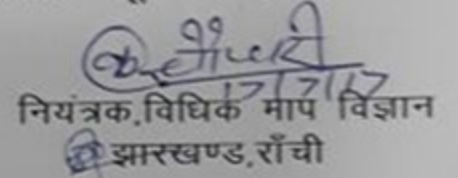 17/7/17
नियंत्रक,विधिक माप विज्ञान
झारखण्ड,राँची